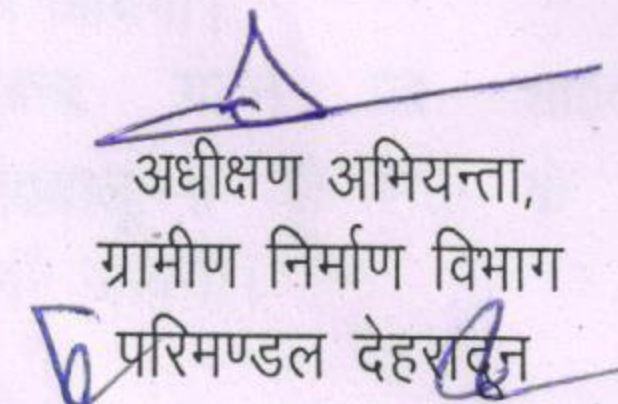 अधीक्षण अभियन्ता,
ग्रामीण निर्माण विभाग
परिमण्डल देहरादून